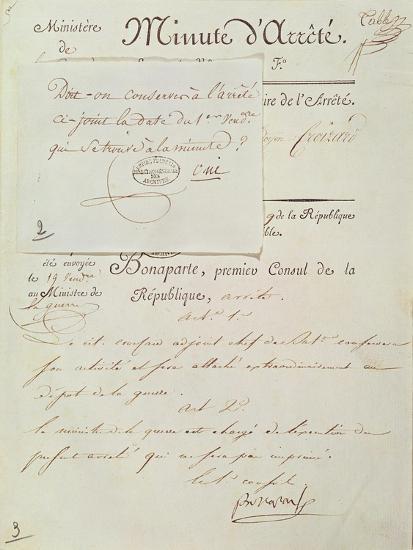 Ministère
de
Minute d'Arrêté.
F.o
Doit-on conserver à l'arrêté
ci-joint la date du 1er Vend.re
qui se trouve à la minute ?
oui
ARCHIVES
2
ire de l'Arrêté.
de la République
ble.
été envoyée
le 19 Vend.re
au Ministre de
la guerre
Bonaparte, premier Consul de la
République, arrête.
art. 1er
Le cit. adjoint chef de Bat.on conservera
son activité et sera attaché extraordinairement au
dépôt de la guerre.
art. 2.
Le ministre de la guerre est chargé de l'exécution du
présent arrêté qui ne sera pas imprimé.
le 1er consul
Bonaparte
3